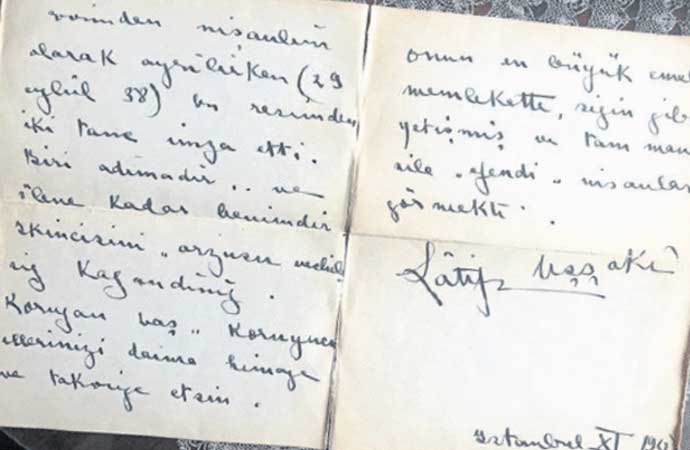 nişanlım
olarak ayrılırken (29
eylûl 38) bu resimden
iki tane imza etti.
Biri adımadır .. ve
ölene kadar benimdir.
İkincisini „arzusu
siz kazandınız.
Koruyan baş „ Koruyucu
ellerinizi daima himaye
ve takviye etsin.
onun en büyük
memlekette, sizin gibi
yetişmiş ve tam
ile „efendi„ insanlar
görmekti.
Lâtife Uşşakî
İstanbul XI 19